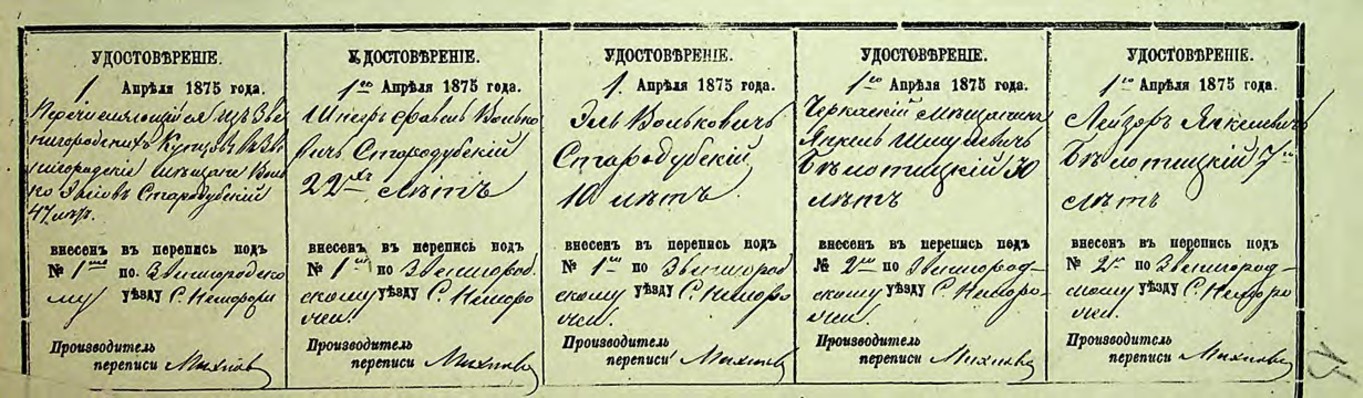 УДОСТОВѢРЕНІЕ.
1 Апрѣля 1875 года.
Перечисляющійся изъ Зве
нигородскихъ Купцовъ въ Зве
нигородскіе мѣщане Воль
ко Эліовъ Стародубскій
47 лѣтъ.
внесенъ въ перепись подъ
№ 1 по Звенигородско
му уѣзду С.
Производитель
переписи
УДОСТОВѢРЕНІЕ.
1го Апрѣля 1875 года.
Волько
вичъ Стародубскій
22хъ лѣтъ
внесенъ въ перепись подъ
№ 1 по Звенигород
скому уѣзду С. Неморо
жеи.
Производитель
переписи
УДОСТОВѢРЕНІЕ.
1. Апрѣля 1875 года.
Эль Вольковичъ
Стародубскій
10 лѣтъ.
внесенъ въ перепись подъ
№ 1 по Звенигород
скому уѣзду С. Неморо
жеи.
Производитель
переписи
УДОСТОВѢРЕНІЕ.
1го Апрѣля 1875 года.
Черкаскій Мѣщанинъ
Янкель Шмулевичъ
Бѣлотицкій 30
лѣтъ
внесенъ въ перепись подъ
№ 2 по Звенигород-
скому уѣзду С. Неморо-
жеи.
Производитель
переписи
УДОСТОВѢРЕНІЕ.
1го Апрѣля 1875 года.
Лейзоръ Янкелевичъ
Бѣлотицкій 7
лѣтъ
внесенъ въ перепись подъ
№ 2 по Звенигород-
скому уѣзду С. Неморо
жеи.
Производитель
переписи